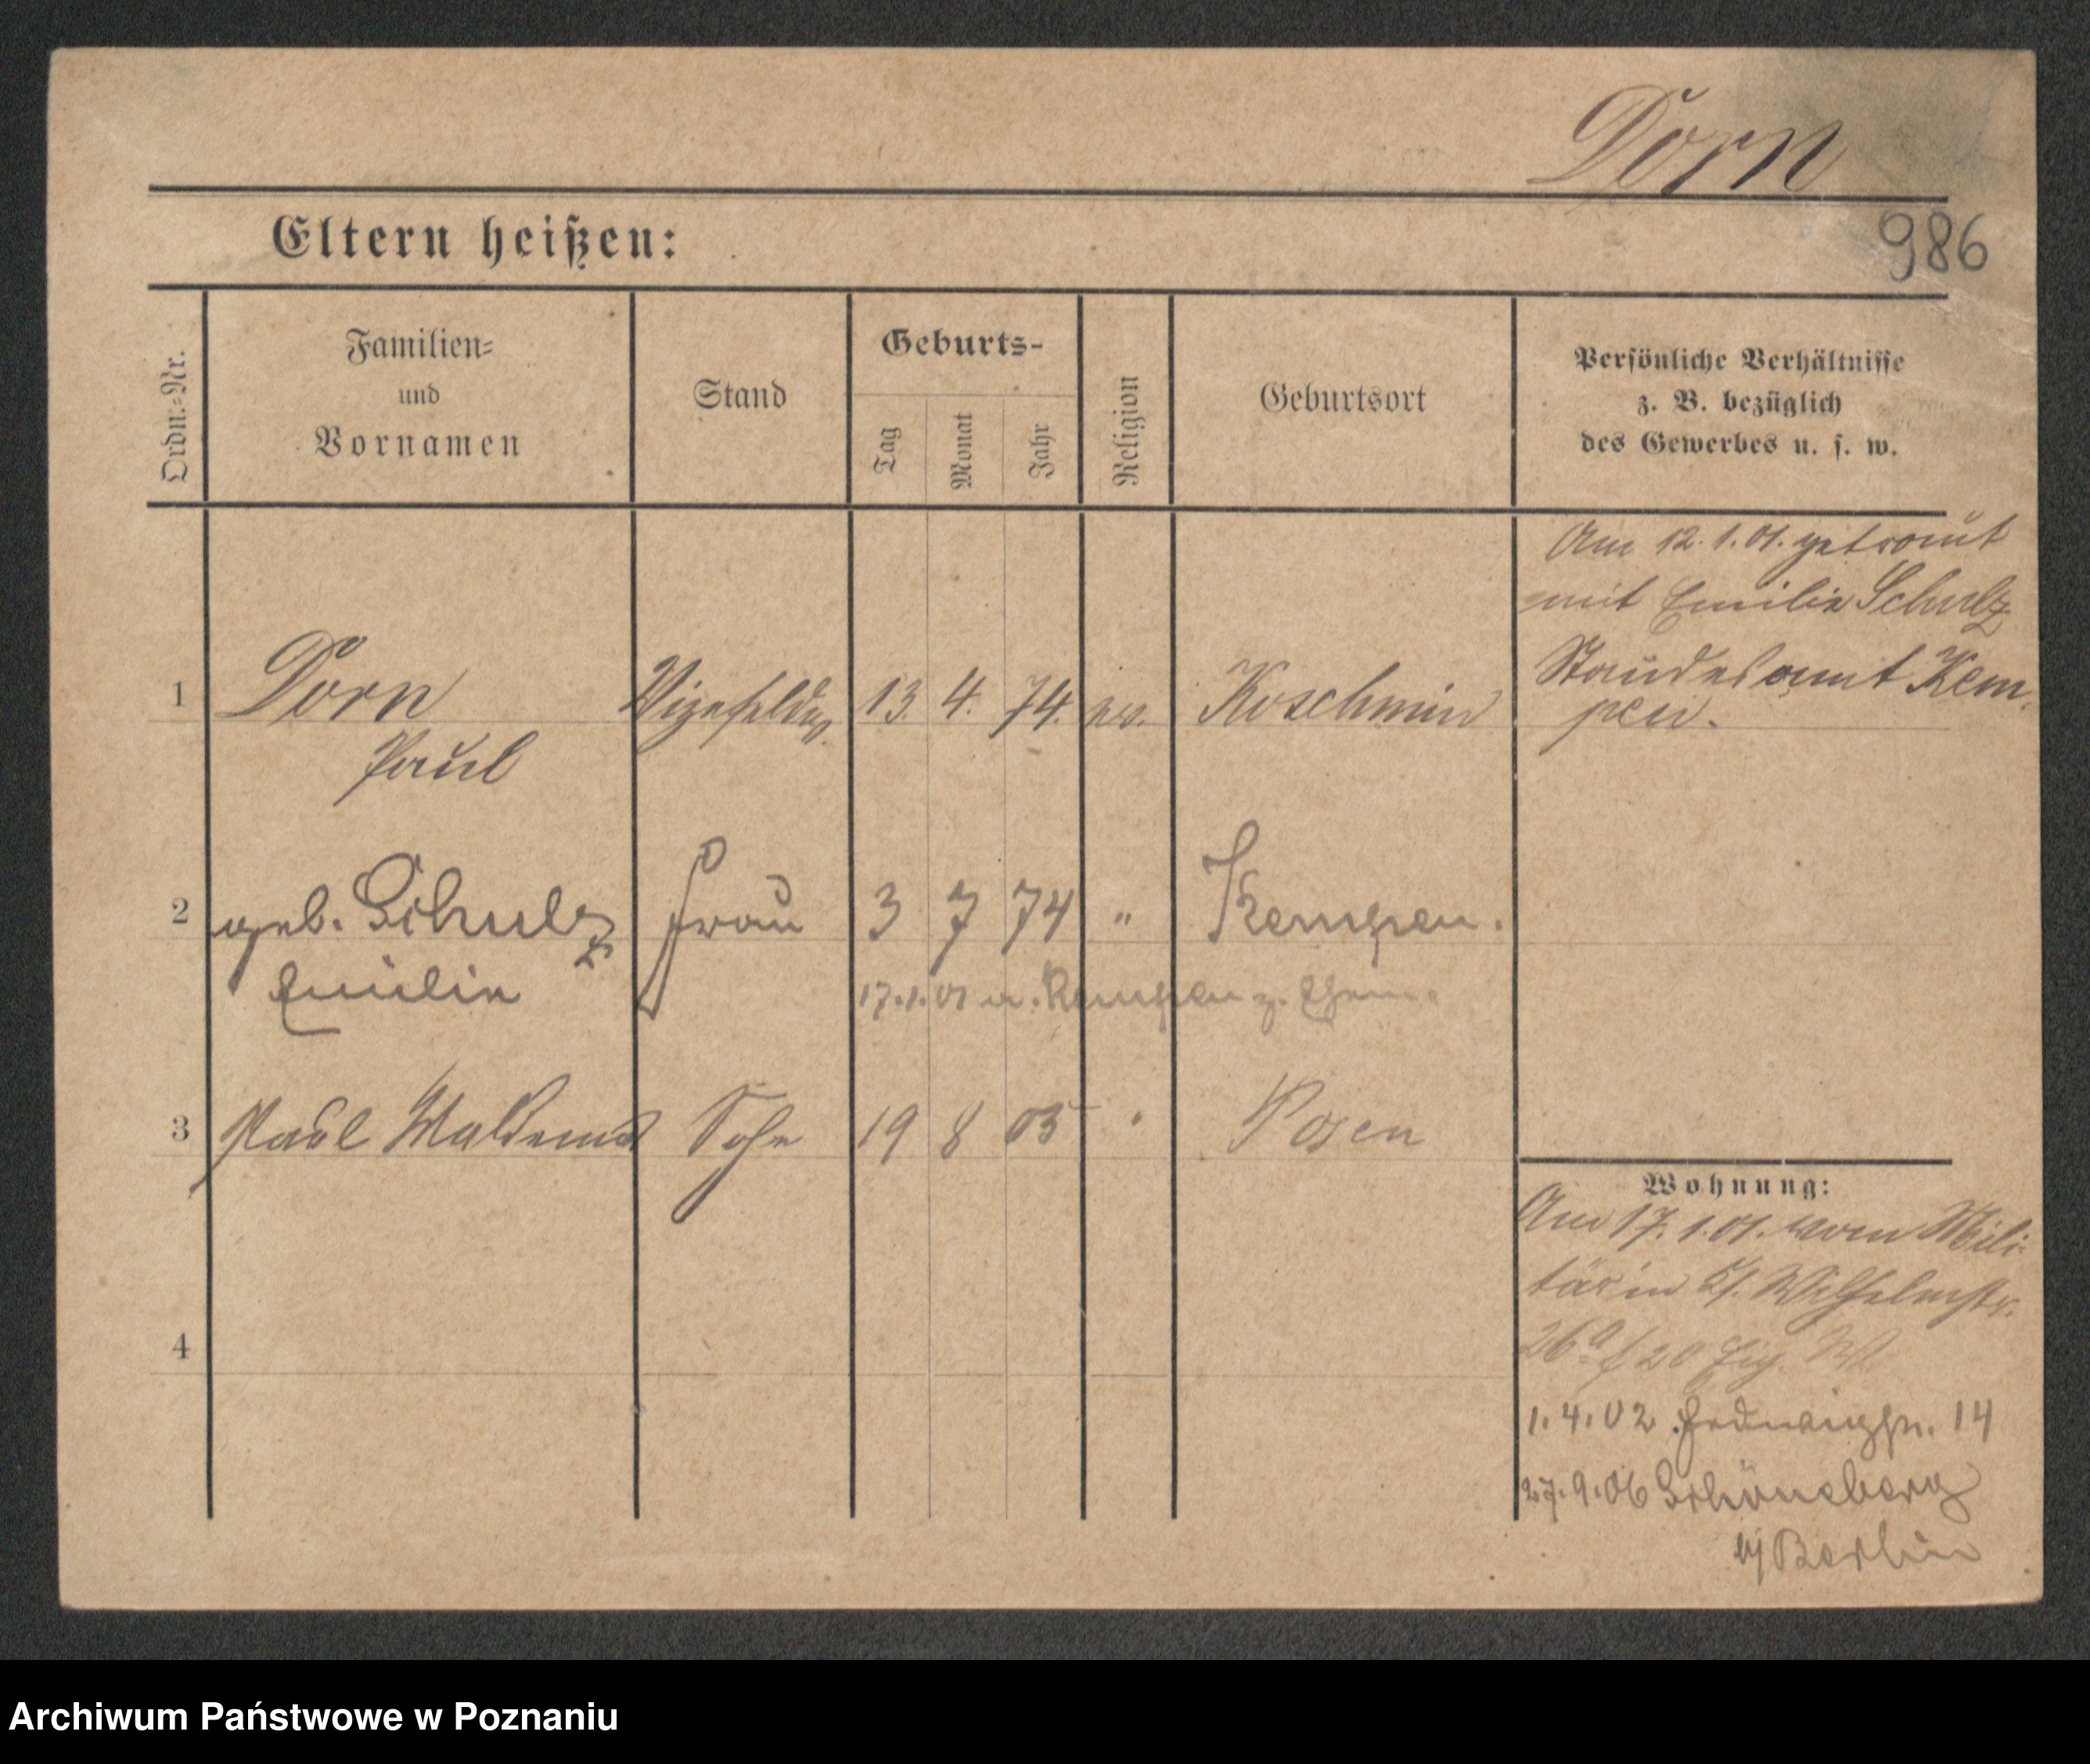 Dorn
Eltern heißen:
986
Ordn.-Nr.
Familien-
und
Vornamen
Stand
Geburts-
Tag
Monat
Jahr
Religion
Geburtsort
Persönliche Verhältnisse
z. B. bezüglich
des Gewerbes u. s. w.
Am 12.1.01. getraut
mit Emilie Schulz
Standesamt Kem
pen.
1 Dorn Vizefeldw 13. 4. 74. ev. Koschmin
Paul
2 geb. Schulz Frau 3 7 74 " Kempen.
Emilie
17.1.01 v. Kempen z. Ehem.
3 Paul Waldemar Sohn 19 8 05 " Posen
Wohnung:
Am 17.1.01. vom Mili-
tär in Wilhelmstr.
26a 20
1.4.02 Hedwigstr. 14
27.9.06 Schöneberg
b/ Berlin
4
Archiwum Państwowe w Poznaniu